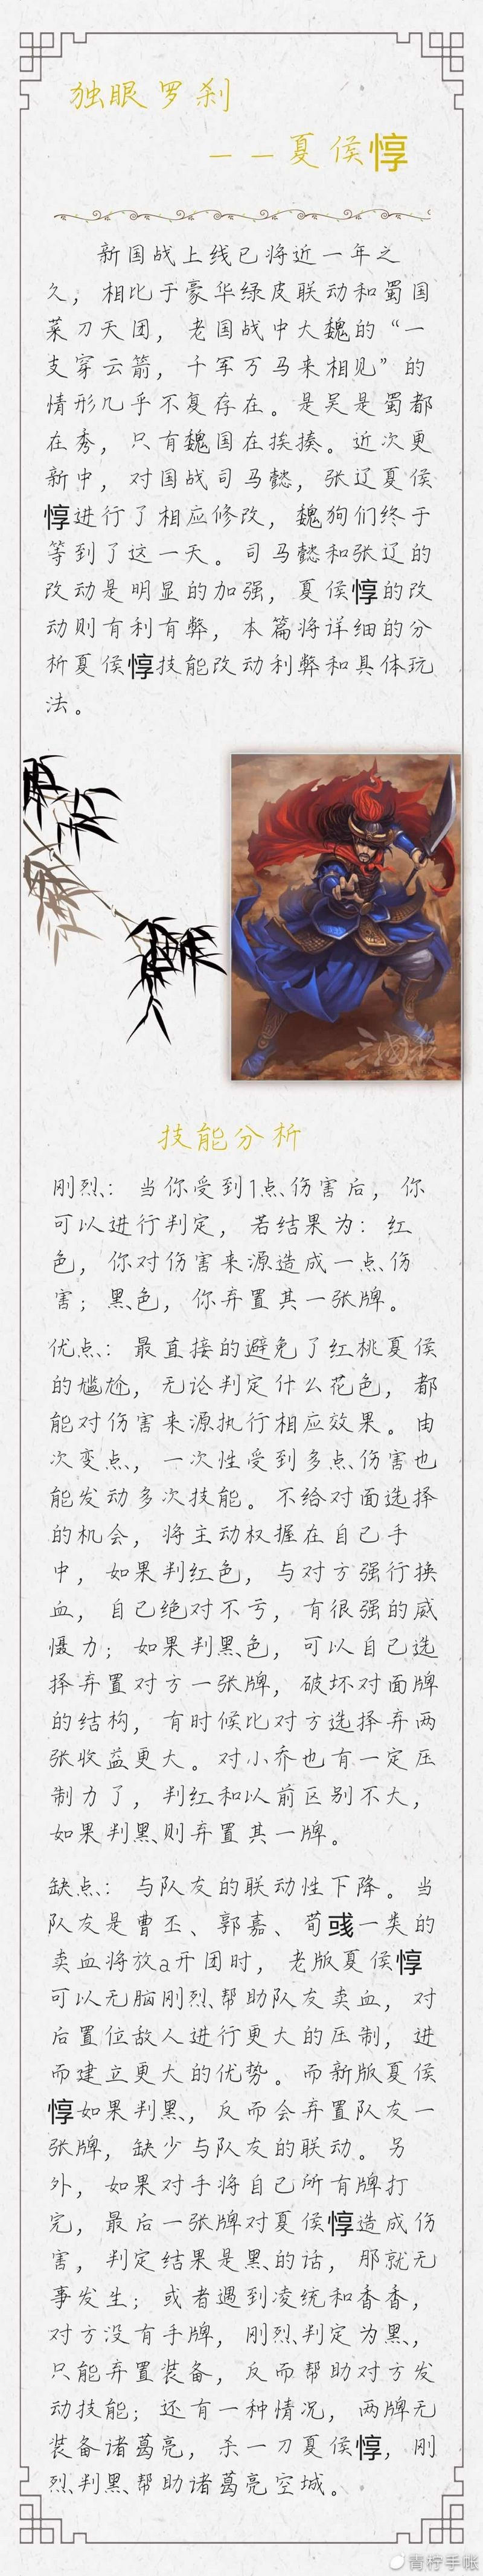 独眼罗刹
——夏侯惇
新国战上线已将近一年之
久，相比于豪华绿皮联动和蜀国
菜刀天团，老国战中大魏的“一
支穿云箭，千军万马来相见”的
情形几乎不复存在。是吴是蜀都
在秀，只有魏国在挨揍。近次更
新中，对国战司马懿，张辽夏侯
惇进行了相应修改，魏狗们终于
等到了这一天。司马懿和张辽的
改动是明显的加强，夏侯惇的改
动则有利有弊，本篇将详细的分
析夏侯惇技能改动利弊和具体玩
法。
三国杀
技能分析
刚烈：当你受到1点伤害后，你
可以进行判定，若结果为：红
色，你对伤害来源造成一点伤
害；黑色，你弃置其一张牌。
优点：最直接的避免了红桃夏侯
的尴尬，无论判定什么花色，都
能对伤害来源执行相应效果。由
次变点，一次性受到多点伤害也
能发动多次技能。不给对面选择
的机会，将主动权握在自己手
中，如果判红色，与对方强行换
血，自己绝对不亏，有很强的威
慑力；如果判黑色，可以自己选
择弃置对方一张牌，破坏对面牌
的结构，有时候比对方选择弃两
张收益更大。对小乔也有一定压
制力了，判红和以前区别不大，
如果判黑则弃置其一牌。
缺点：与队友的联动性下降。当
队友是曹丕、郭嘉、荀彧一类的
卖血将放a开团时，老版夏侯惇
可以无脑刚烈帮助队友卖血，对
后置位敌人进行更大的压制，进
而建立更大的优势。而新版夏侯
惇如果判黑，反而会弃置队友一
张牌，缺少与队友的联动。另
外，如果对手将自己所有牌打
完，最后一张牌对夏侯惇造成伤
害，判定结果是黑的话，那就无
事发生；或者遇到凌统和香香，
对方没有手牌，刚烈判定为黑，
只能弃置装备，反而帮助对方发
动技能；还有一种情况，两牌无
装备诸葛亮，杀一刀夏侯惇，刚
烈判黑帮助诸葛亮空城。
青柠手帐